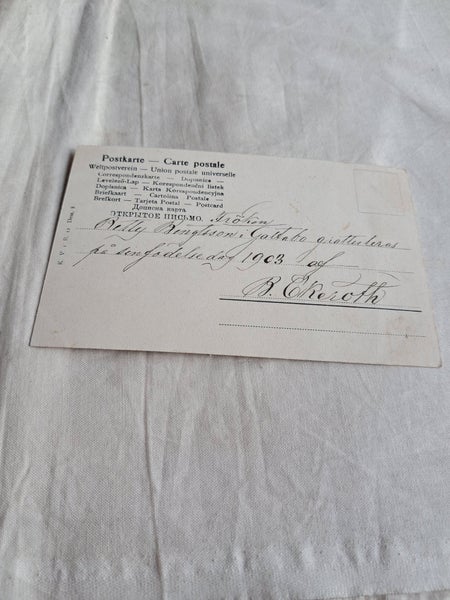 Postkarte — Carte postale
Weltpostverein — Union postale universelle
Correspondenzkarte — Dopisnice —
Levelező-Lap — Korespondendni listek
Dopisnica — Karta Korespondencyjna
Briefkaart — Cartolina Postale —
Brefkort — Tarjeta Postal — Postcard
Дописна карта
ОТКРЫТОЕ ПИСЬМО.
Fröken
Betty Bengtsson i gratuleras
på sin födelsedag 1903 af
B. Ekeroth